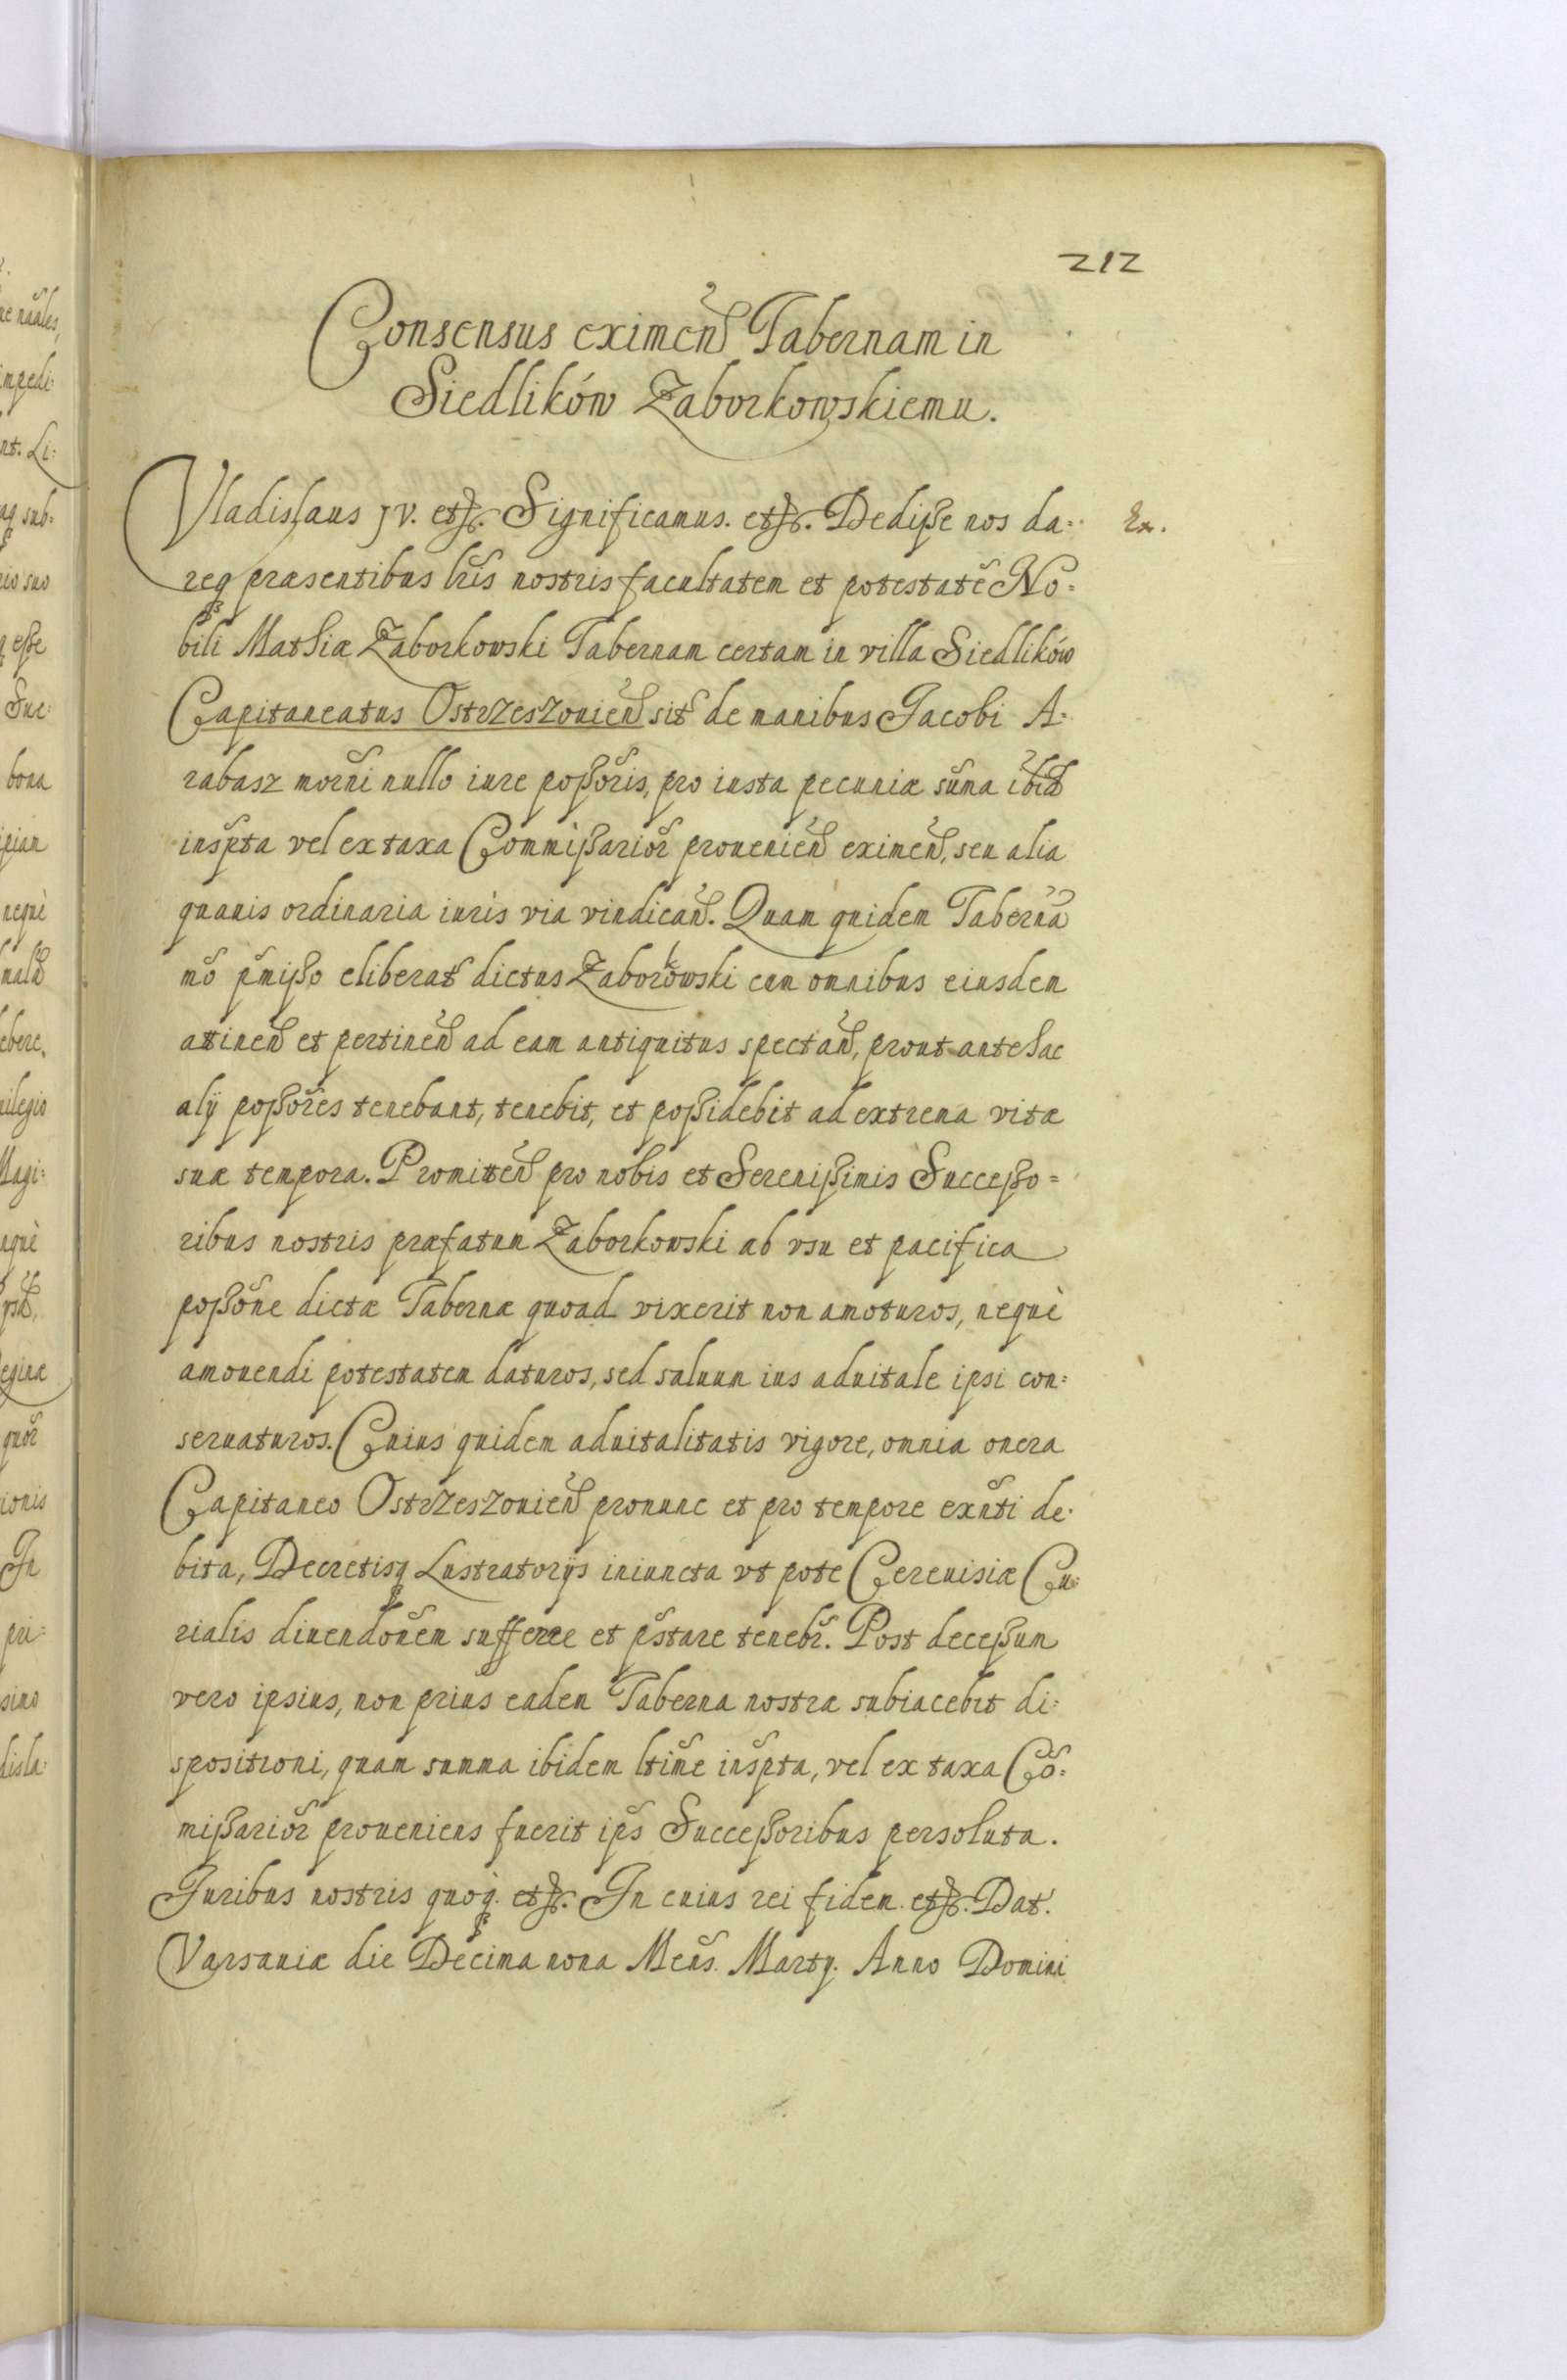 212
Consensus eximen̄ Tabernam in
Siedlików Zaborkowskiemu.
Vladislaus JV. etc. Significamus. etc. Dedisse nos da=
req praesentibus lr̄is nostris facultatem et potestatē No=
bili Mathiæ Zaborkowski Tabernam certam in villa Siedlików
Capitaneatus Ostrzeszouien̄ sit̄ de manibus Jacobi A=
rabasz mor̄ni nullo iure possōris, pro iusta pecuniæ sūma ibid̄
insp̄ta vel ex taxa Commissariōr prouenien̄ eximen̄, seu alia
quauis ordinaria iuris via vindican̄. Quam quidem Tabernā
mō p̄misso eliberat̄ dictus Zaborkowski cum omnibus eiusdem
attinen̄ et pertinen̄ ad eam antiquitus spectan̄, prout antehac
alij possōres tenebant, tenebit, et possidebit ad extrema vitæ
suæ tempora. Promitten̄ pro nobis et Serenissimis Successo=
ribus nostris præfatum Zaborkowski ab vsu et pacifica
possōne dictæ Tabernæ quoad vixerit non amoturos, nequè
amouendi potestatem daturos, sed saluum ius aduitale ipsi con=
seruaturos. Cuius quidem aduitalitatis vigore, omnia onera
Capitaneo Ostrzeszouien̄ pronunc et pro tempore exn̄ti de=
bita, Decretisq Lustratorijs iniuncta vt pote Cereuisiæ Cu=
rialis diuendōnem sufferre et p̄stare tenebr̄. Post decessum
vero ipsius, non prius eadem Taberna nostra subiacebit di=
spositioni, quam summa ibidem ltīme insp̄ta, vel ex taxa Cō=
missariōr proueniens fuerit ip̄s Successoribus persoluta.
Juribus nostris quoq. etc. In cuius rei fidem. etc. Dat.
Varsauiæ die Decima nona Men̄s. Martij. Anno Domini
Ex.